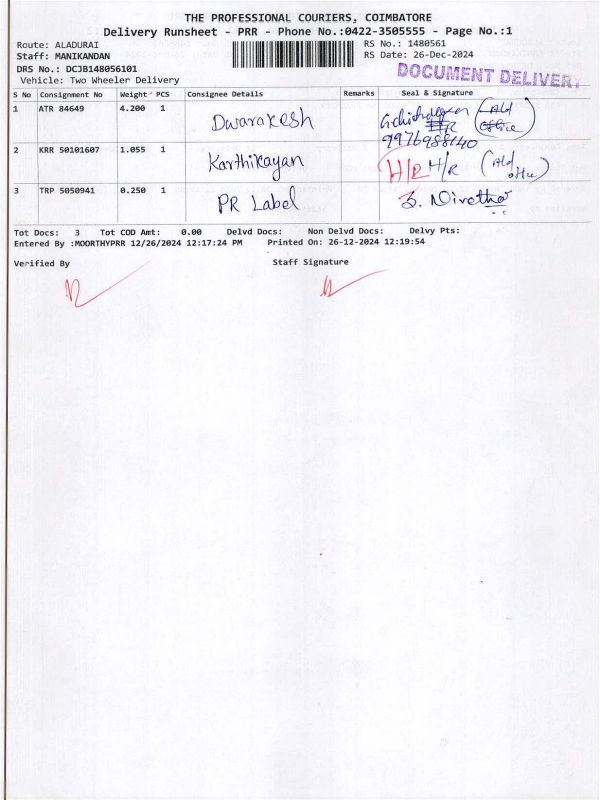 THE PROFESSIONAL COURIERS, COIMBATORE
Delivery Runsheet - PRR - Phone No.:0422-3505555 - Page No.:1
Route: ALADURAI RS No.: 1480561
Staff: MANIKANDAN RS Date: 26-Dec-2024
DRS No.: DCJB148056101
DOCUMENT DELIVERY
Vehicle: Two Wheeler Delivery
S No Consignment No Weight PCS Consignee Details Remarks Seal & Signature
1 ATR 84649 4.200 1 Dwarakesh
9976988140
2 KRR 50101607 1.055 1 Karthikayan H/R H/R
3 TRP 5050941 0.250 1 PR Label
Tot Docs: 3 Tot COD Amt: 0.00 Delvd Docs: Non Delvd Docs: Delvy Pts:
Entered By :MOORTHYPRR 12/26/2024 12:17:24 PM Printed On: 26-12-2024 12:19:54
Verified By Staff Signature